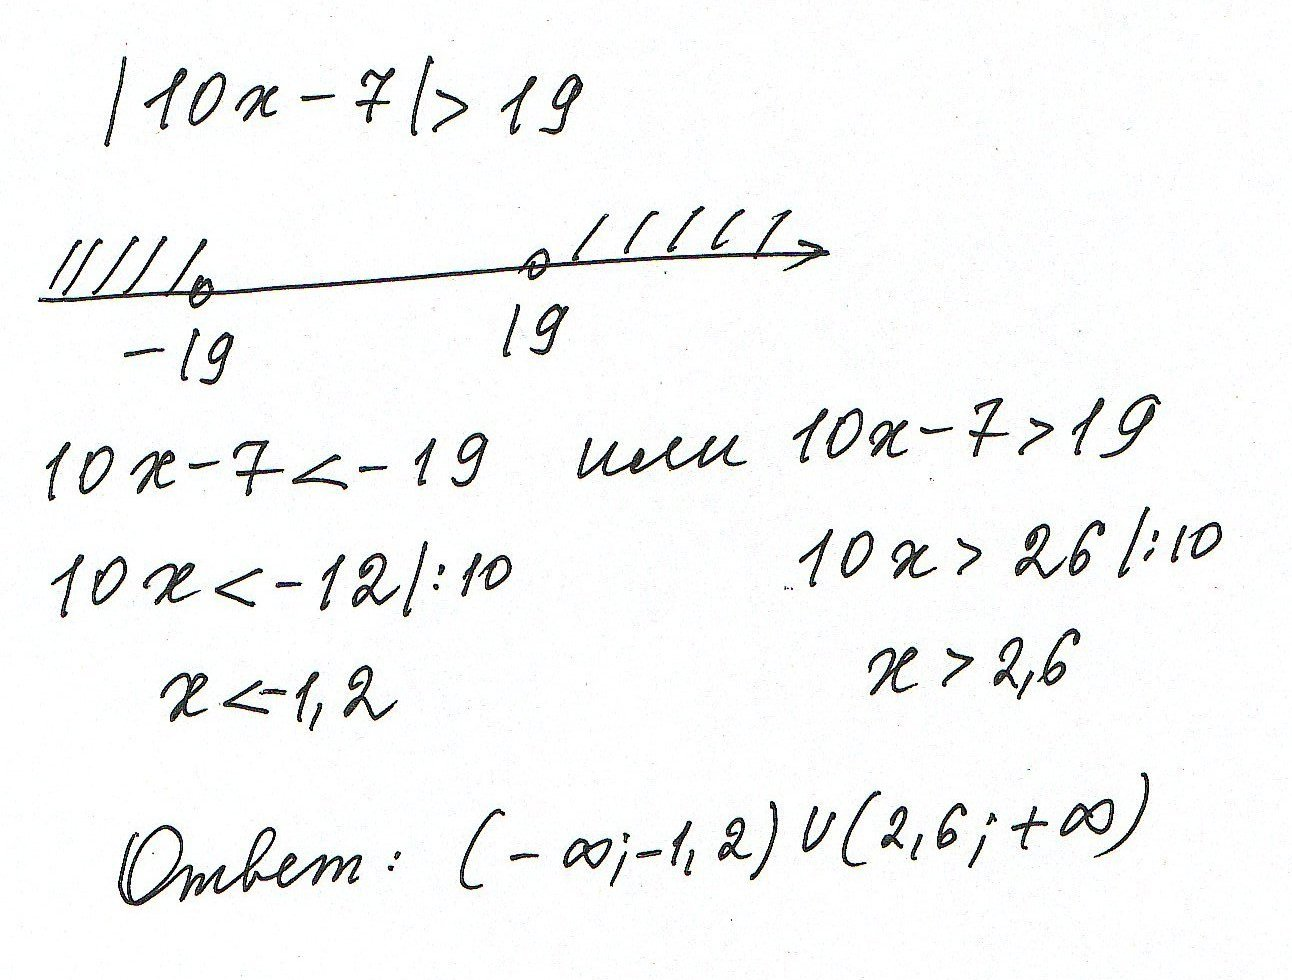 |10x-7|> 19
-19 19
10x-7<-19 или 10x-7>19
10x<-12|:10 10x>26|:10
x<-1,2 x>2,6
Ответ: (-∞;-1,2)∪(2,6;+∞)